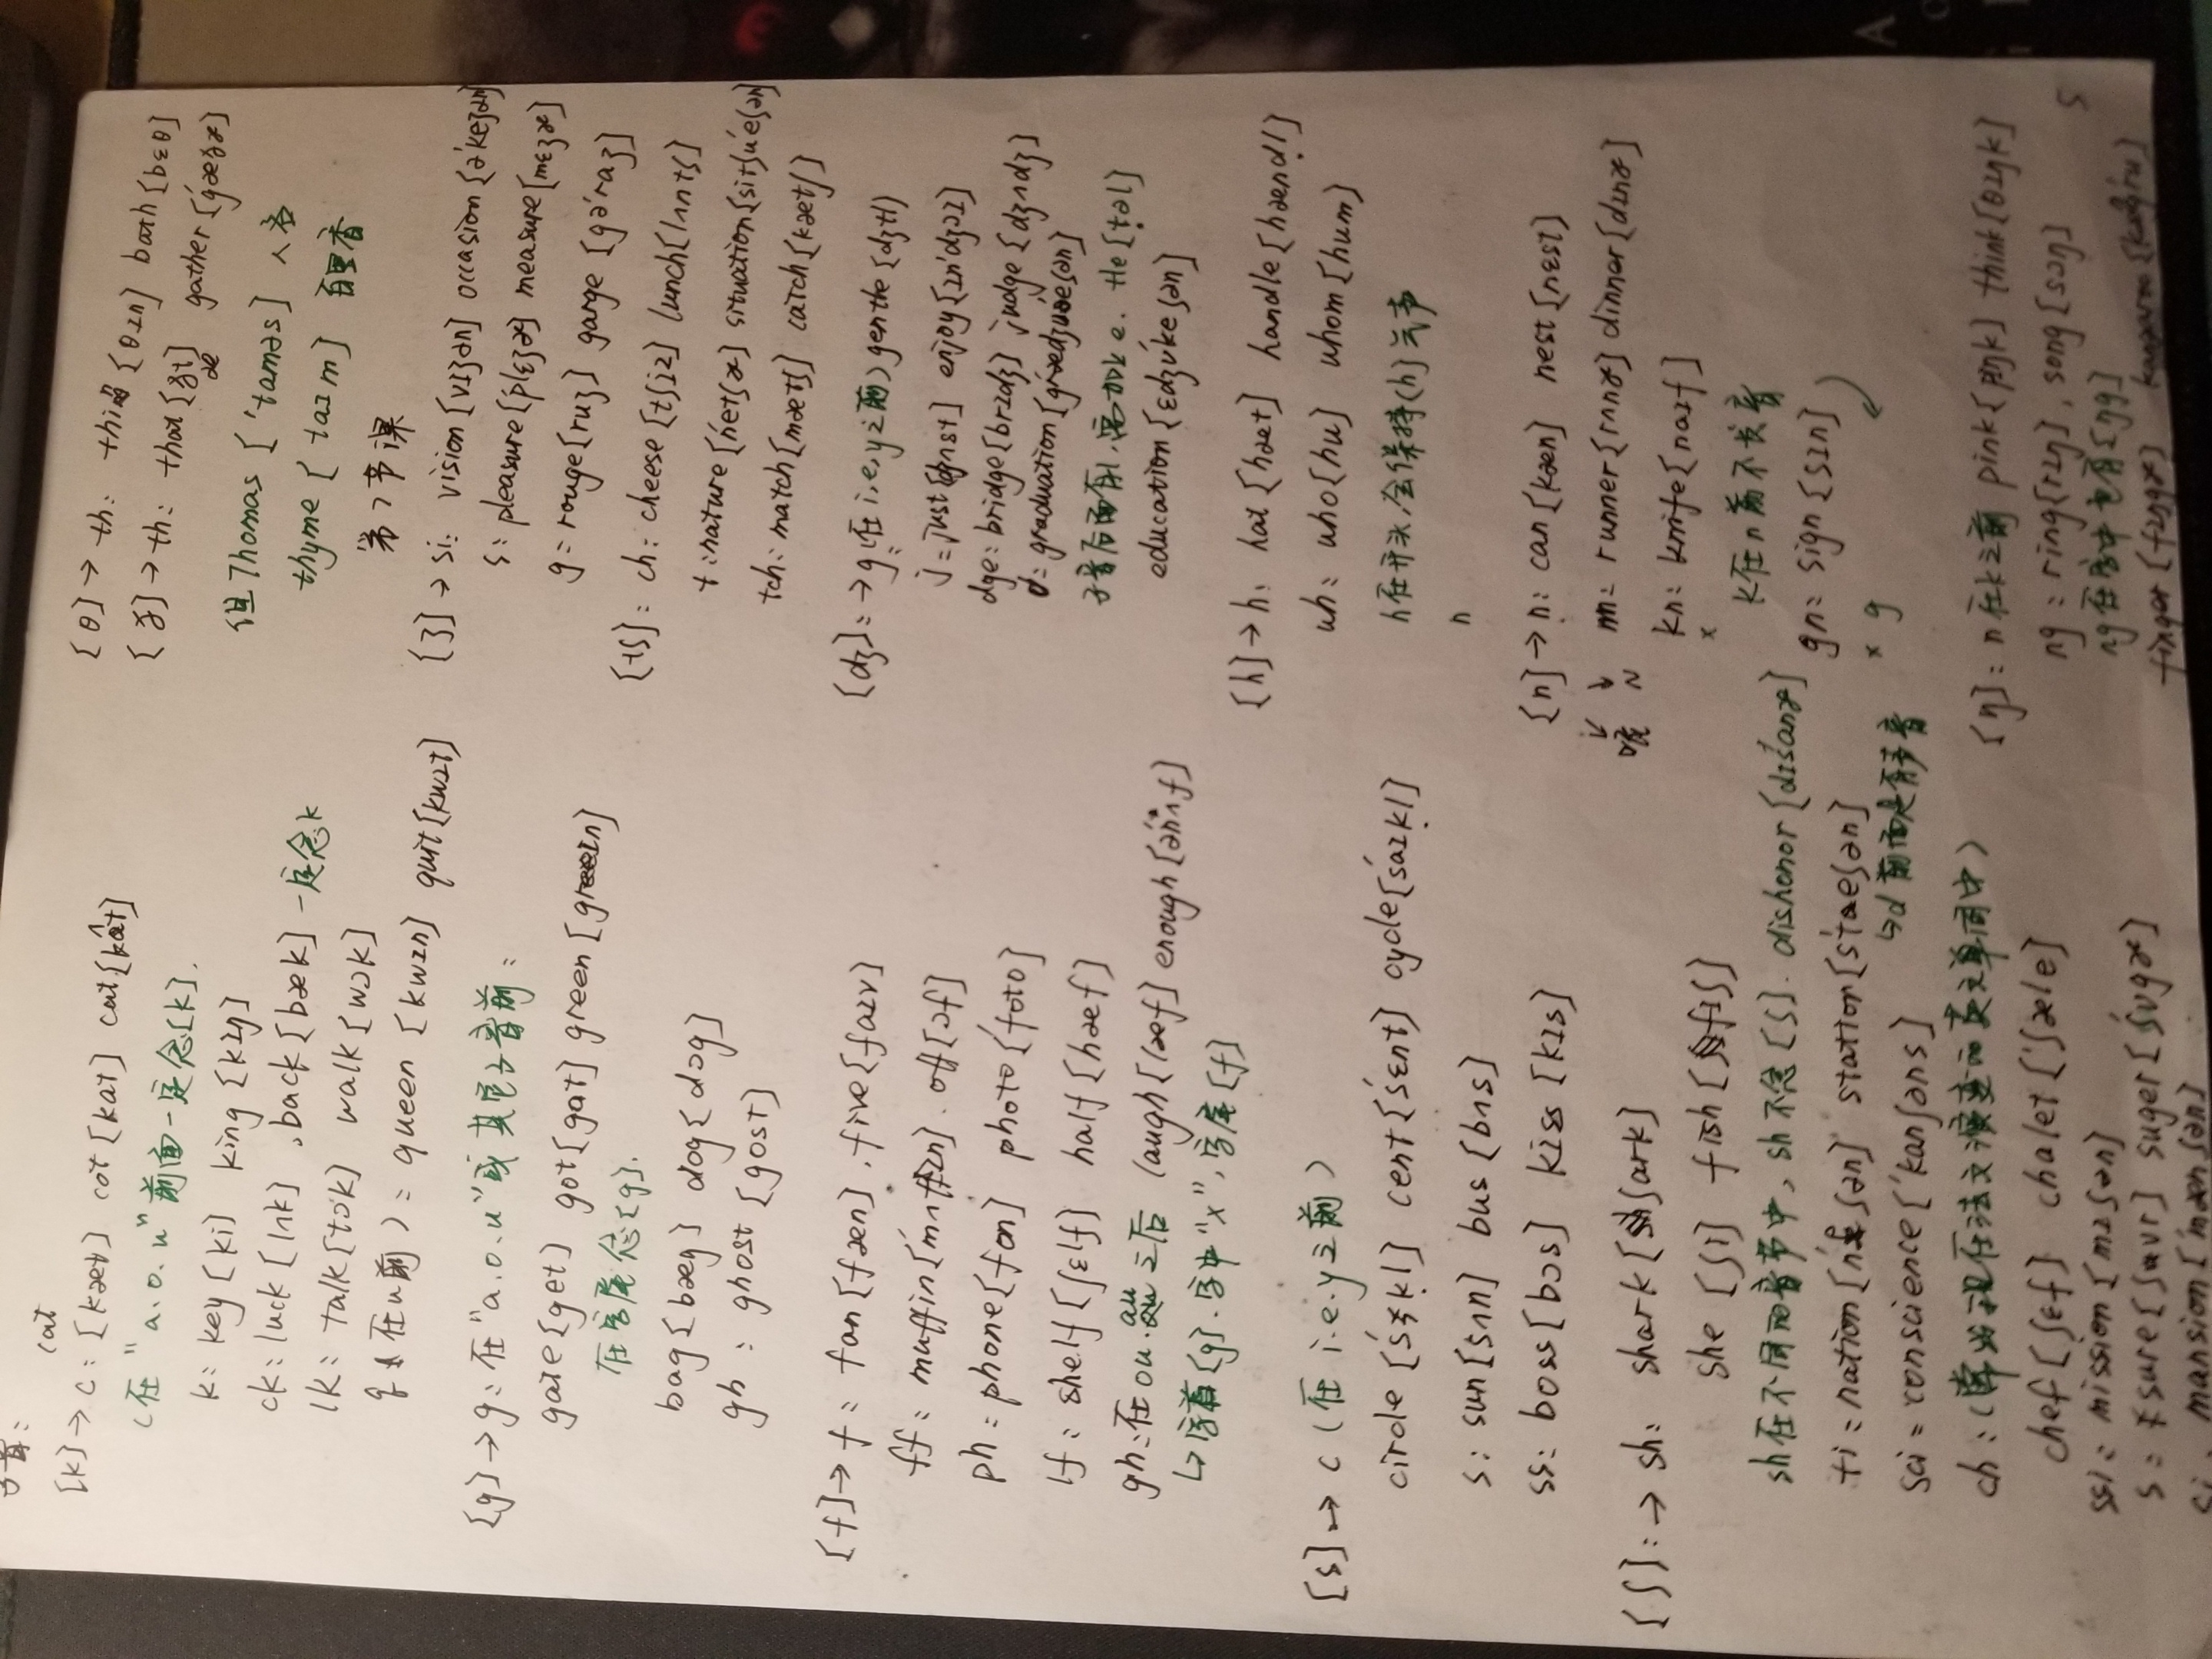 子音:
cat
[k]→ c: [kæt] cot [kat] cut [kʌt]
c在"a.o.u"前面一定念[k].
k: key [ki] king [kɪŋ]
ck: luck [lʌk] , back [bæk] 一定念k
lk: talk [tɔk] walk [wɔk]
q (在u前): queen [kwɪn] quit [kwɪt]
[g]→ g: 在"a.o.u"或其它子音前:
gate [get] got [gat] green [grɪn]
在字尾念[g].
bag [bæg] dog [dɔg]
gh : ghost [gost]
[f]→ f: fan [fæn] , five [faɪv]
ff: muffin [ˈmʌfɪn] . off [ɔf]
ph: phone [fon] photo [ˈfoto]
lf: shelf [ʃɛlf] half [hæf]
gh: 在ou.au之后 laugh [læf] enough [əˈnʌf]
↳字首[g].字中"x",字尾[f]
[s]→ c (在 i.e.y之前)
circle [ˈsɝkl̩] cent [ˈsɛnt] cycle [ˈsaɪkl̩]
s: sun [sʌn] bus [bʌs]
ss: boss [bɔs] kiss [kɪs]
[ʃ]:→ sh: shark [ʃark]
she [ʃi] fish [fɪʃ]
sh在不同的音节中, sh不念[ʃ]. dishonor [dɪsˈanɚ]
ti: nation [ˈneʃən] station [ˈsteʃən]
↳d 前面是有声音
sci: conscience [ˈkanʃəns]
ch: (常出现在法文演变的英文单词中)
chef [ʃɛf] chalet [ˈʃæle]
ssi: mission [mɪʃən]
s: sure [ʃʊr] suger [ˈʃʊgɚ]
si: mansion [ˈmænʃən]
[θ]→ th: thin [θɪn] bath [bɛθ]
[ð]→ th: that [ðæt] gather [ˈgæðɚ]
但Thomas [ˈtaməs] 人名
thyme [taɪm] 百里香
第7节课
[ʒ]→ si: vision [vɪʒən] occasion [əˈkeʒən]
s: pleasure [ˈplɛʒɚ] measure [mɛʒɚ]
g: rouge [ruʒ] garge [gəˈraʒ]
[tʃ]: ch: cheese [tʃiz] lunch [lʌntʃ]
t: nature [ˈnetʃɚ] situation [sitʃuˈeʃən]
tch: match [mætʃ] catch [kætʃ]
[dʒ]:→ g (在 i,e,y之前) gentle [dʒtl]
j: just [dʒʌst] enjoy [ɪnˈdʒɔɪ]
dge: bridge [brɪdʒ] judge [dʒʌdʒ]
d: graduation [grædʒuˈeʃən]
子音后面有l, 需加 e. tle [təl]
education [ɛdʒʊˈkeʃən]
[h]→ h: hat [hæt] handle [hændl̩]
wh: who [hu] whom [hum]
h在开头,会保持[h]气声
n
[n]→ n: can [kæn] nest [nɛst]
↓ ↓
呢 N
nn: runner [rʌnɚ] dinner [dɪnɚ]
kn: knife [naɪf]
x
k在n前不发音
gn: sign [sɪn]
x g
[ŋ]: n在k之前 pink [pɪŋk] think [θɪŋk]
ng: ring [rɪŋ] , song [sɔŋ]
ng在字中也有[ŋg]
finger [fɪŋgɚ] kangaroo
5